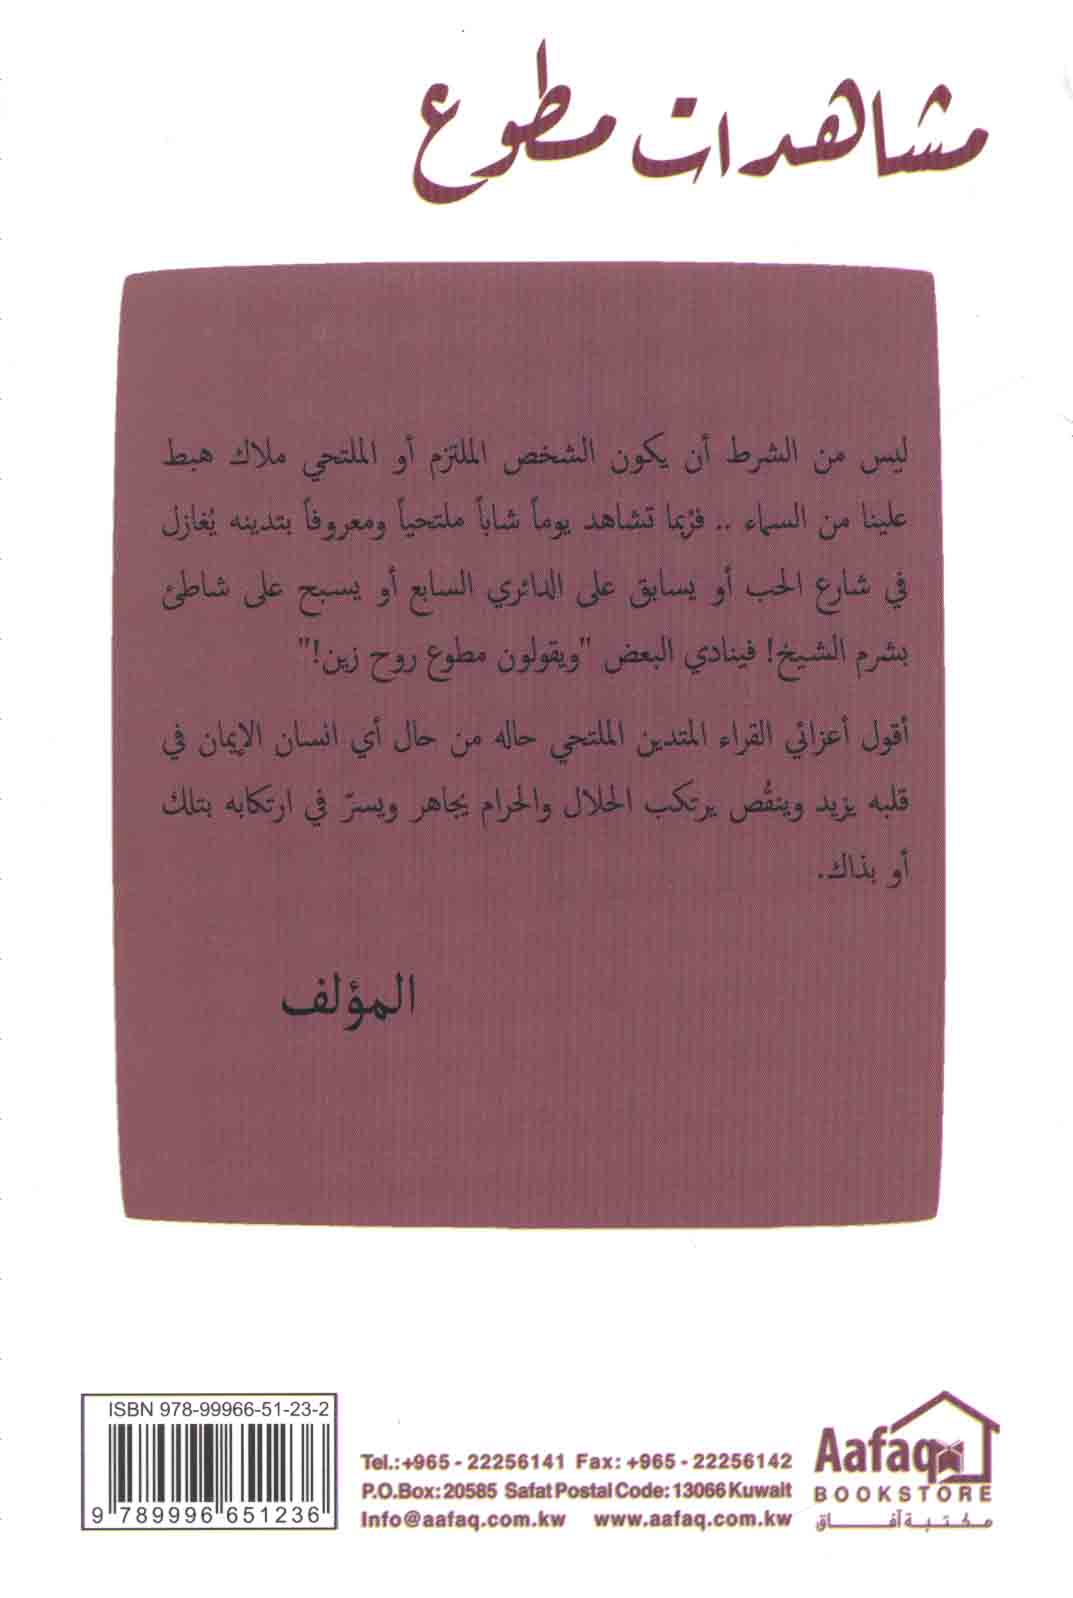 مشاهدات مطوع
ليس من الشرط أن يكون الشخص الملتزم أو الملتحي ملاك هبط
علينا من السماء .. فرُبما تشاهد يوماً شاباً ملتحياً ومعروفاً بتدينه يُغازل
في شارع الحب أو يسابق على الدائري السابع أو يسبح على شاطئ
بشرم الشيخ! فينادي البعض "ويقولون مطوع روح زين!"
أقول أعزائي القراء المتدين الملتحي حاله من حال أي انسان الإيمان في
قلبه يزيد وينقُص يرتكب الحلال والحرام يجاهر ويسرّ في ارتكابه بتلك
أو بذاك.
المؤلف
ISBN 978-99966-51-23-2
9 789996 651236
Tel.:+965 - 22256141 Fax: +965 - 22256142
P.O.Box: 20585 Safat Postal Code: 13066 Kuwait
Info@aafaq.com.kw www.aafaq.com.kw
Aafaq
BOOKSTORE
مكتبة آفاق